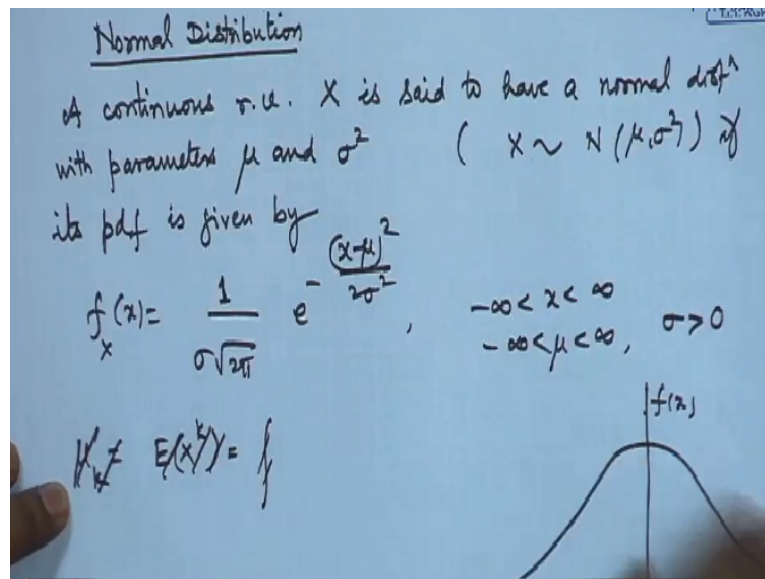 Normal Distribution
A continuous r.v. X is said to have a normal distⁿ
with parameters μ and σ² ( X ~ N(μ, σ²) if
its pdf is given by
f_X(x) = 1/(σ√2π) e^-(x-μ)²/2σ² , -∞ < x < ∞
-∞ < μ < ∞, σ > 0
f(x)
μ'_k = E(X^k) = ∫